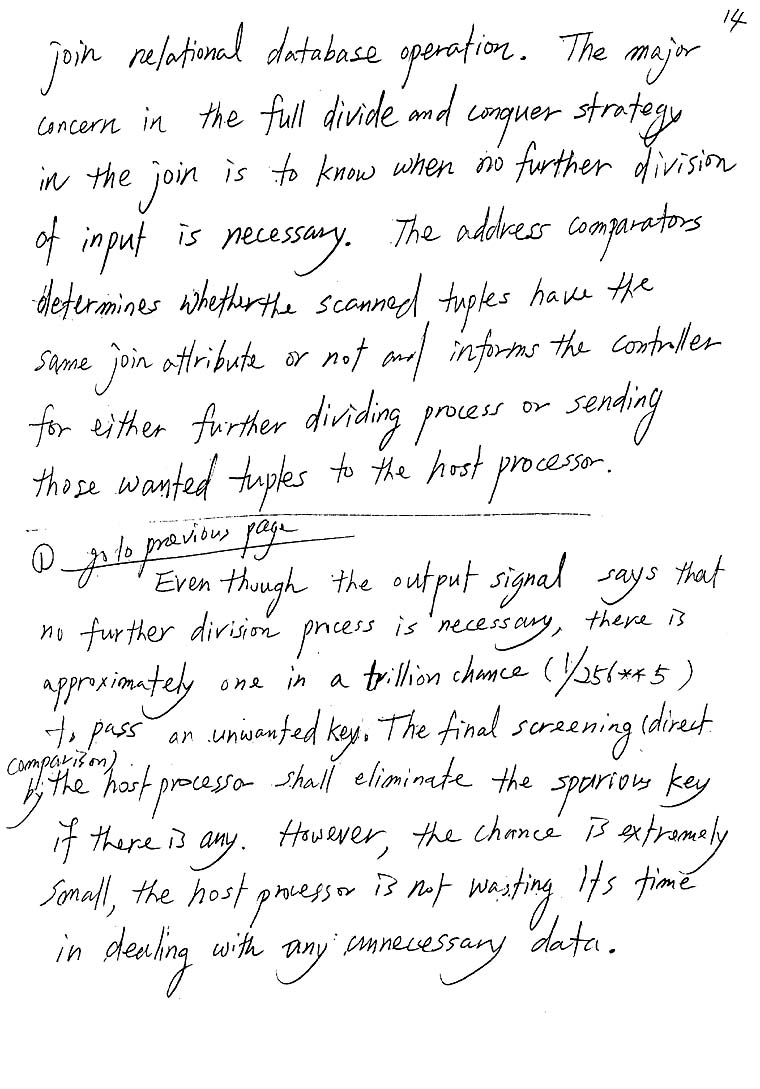 14
join relational database operation. The major
concern in the full divide and conquer strategy
in the join is to know when no further division
of input is necessary. The address comparators
determines whether the scanned tuples have the
same join attribute or not and informs the controller
for either further dividing process or sending
those wanted tuples to the host processor.
① go to previous page
Even though the output signal says that
no further division process is necessary, there is
approximately one in a trillion chance (1/256**5)
to pass an unwanted key. The final screening (direct
comparison)
by the host processor shall eliminate the spurious key
if there is any. However, the chance is extremely
small, the host processor is not wasting its time
in dealing with any unnecessary data.